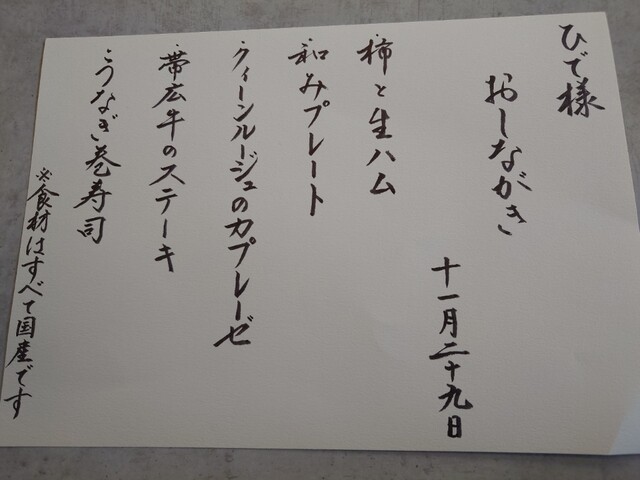 ひで様
おしながき
十一月二十九日
・柿と生ハム
・和みプレート
・クィーンルージュのカプレーゼ
・帯広牛のステーキ
・うなぎ巻寿司
※食材はすべて国産です